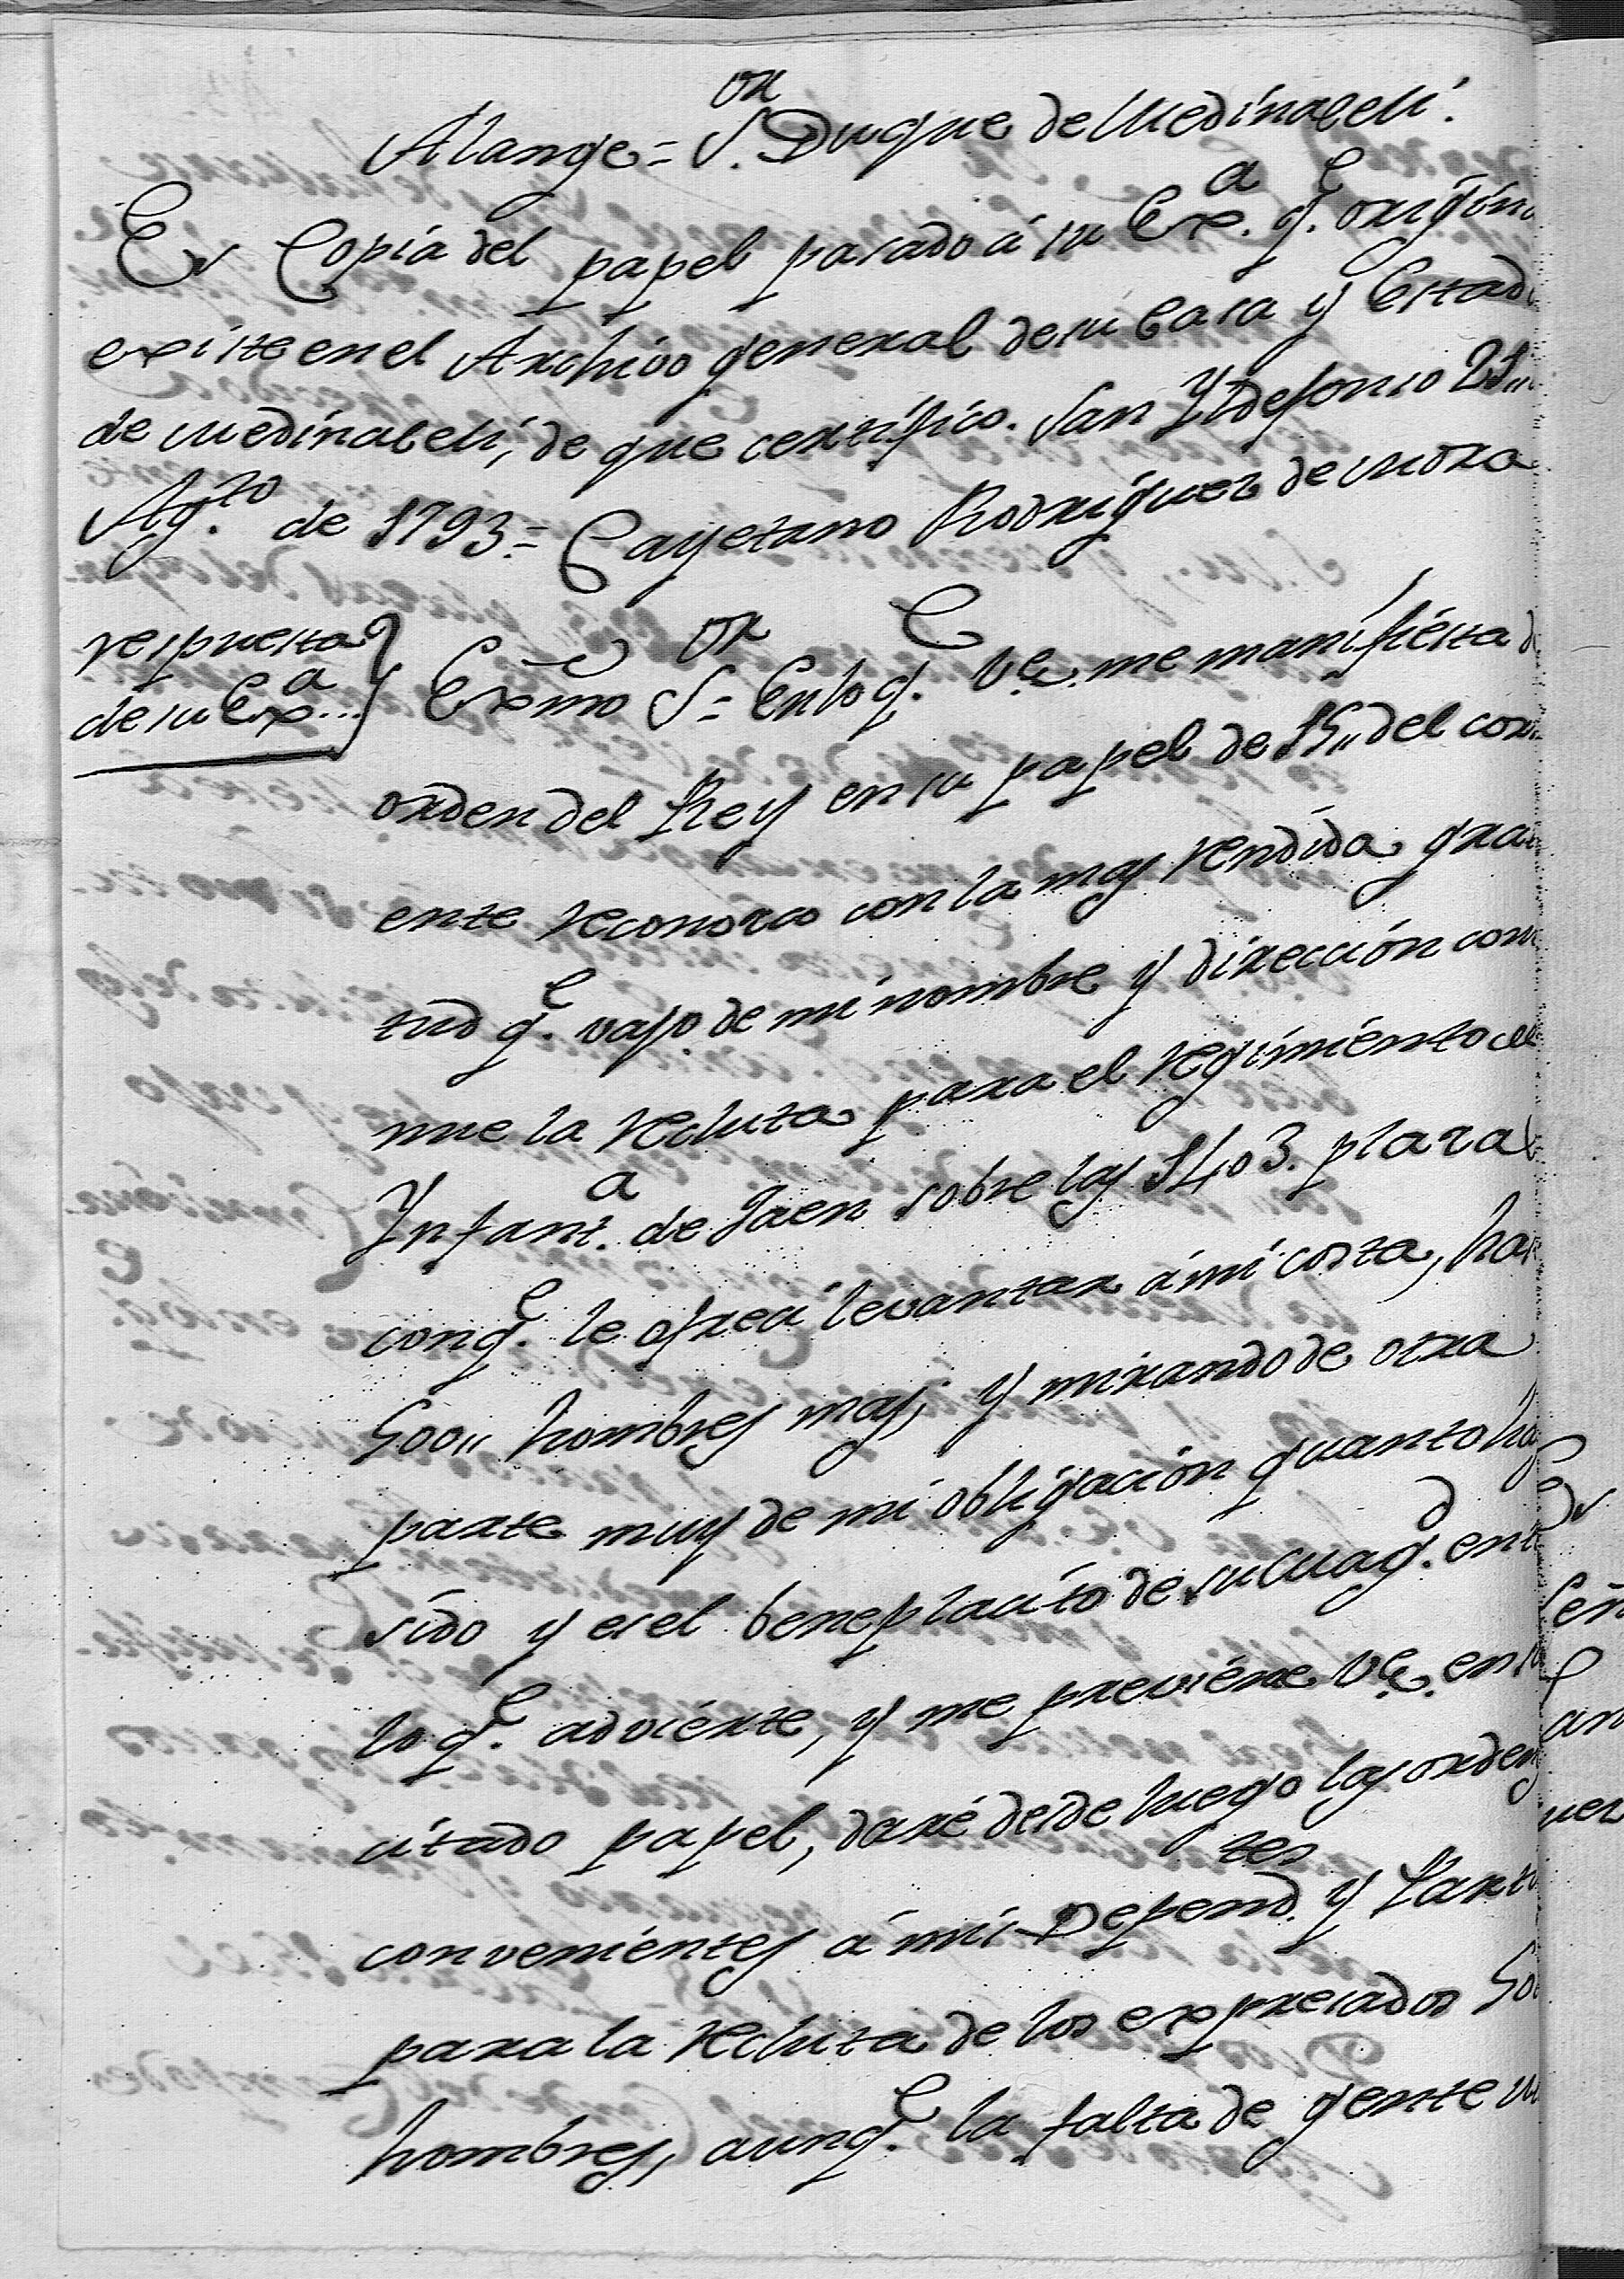 Alange = S.or Duque de Medinaceli.
Es Copia del papel pasado á su Exa. q.e origin
existe en el Archivo general de su Casa y Estad
de Medinaceli, de que certifico. San Yldefonso 21,,
Ag.to de 1793 = Cayetano Rodriguez de Mora
respuesta
de su Exa...
Exmo S.or = En lo q.e V.e. me manifiesta d
orden del Rey en su papel de 15,, del cor
ente reconozco con la mas rendida gra
tud q.e vajo de mi nombre y dirección con
nue la recluta para el regimiento de
Ynfant.a de Jaen sobre las 1403. plazas
con q.e le ofreci levantar á mi costa, has
500,, hombres mas, y mirando de otra
parte muy de mi obligación quanto ha
sido y es el beneplacito de su Mag.d ent
lo q.e advierte, y me previene V.e. en su
citado papel, daré desde luego las orden
convenientes á mis Depend.tes y Parti
para la recluta de los expresados 50
hombres, aunq.e la falta de gente